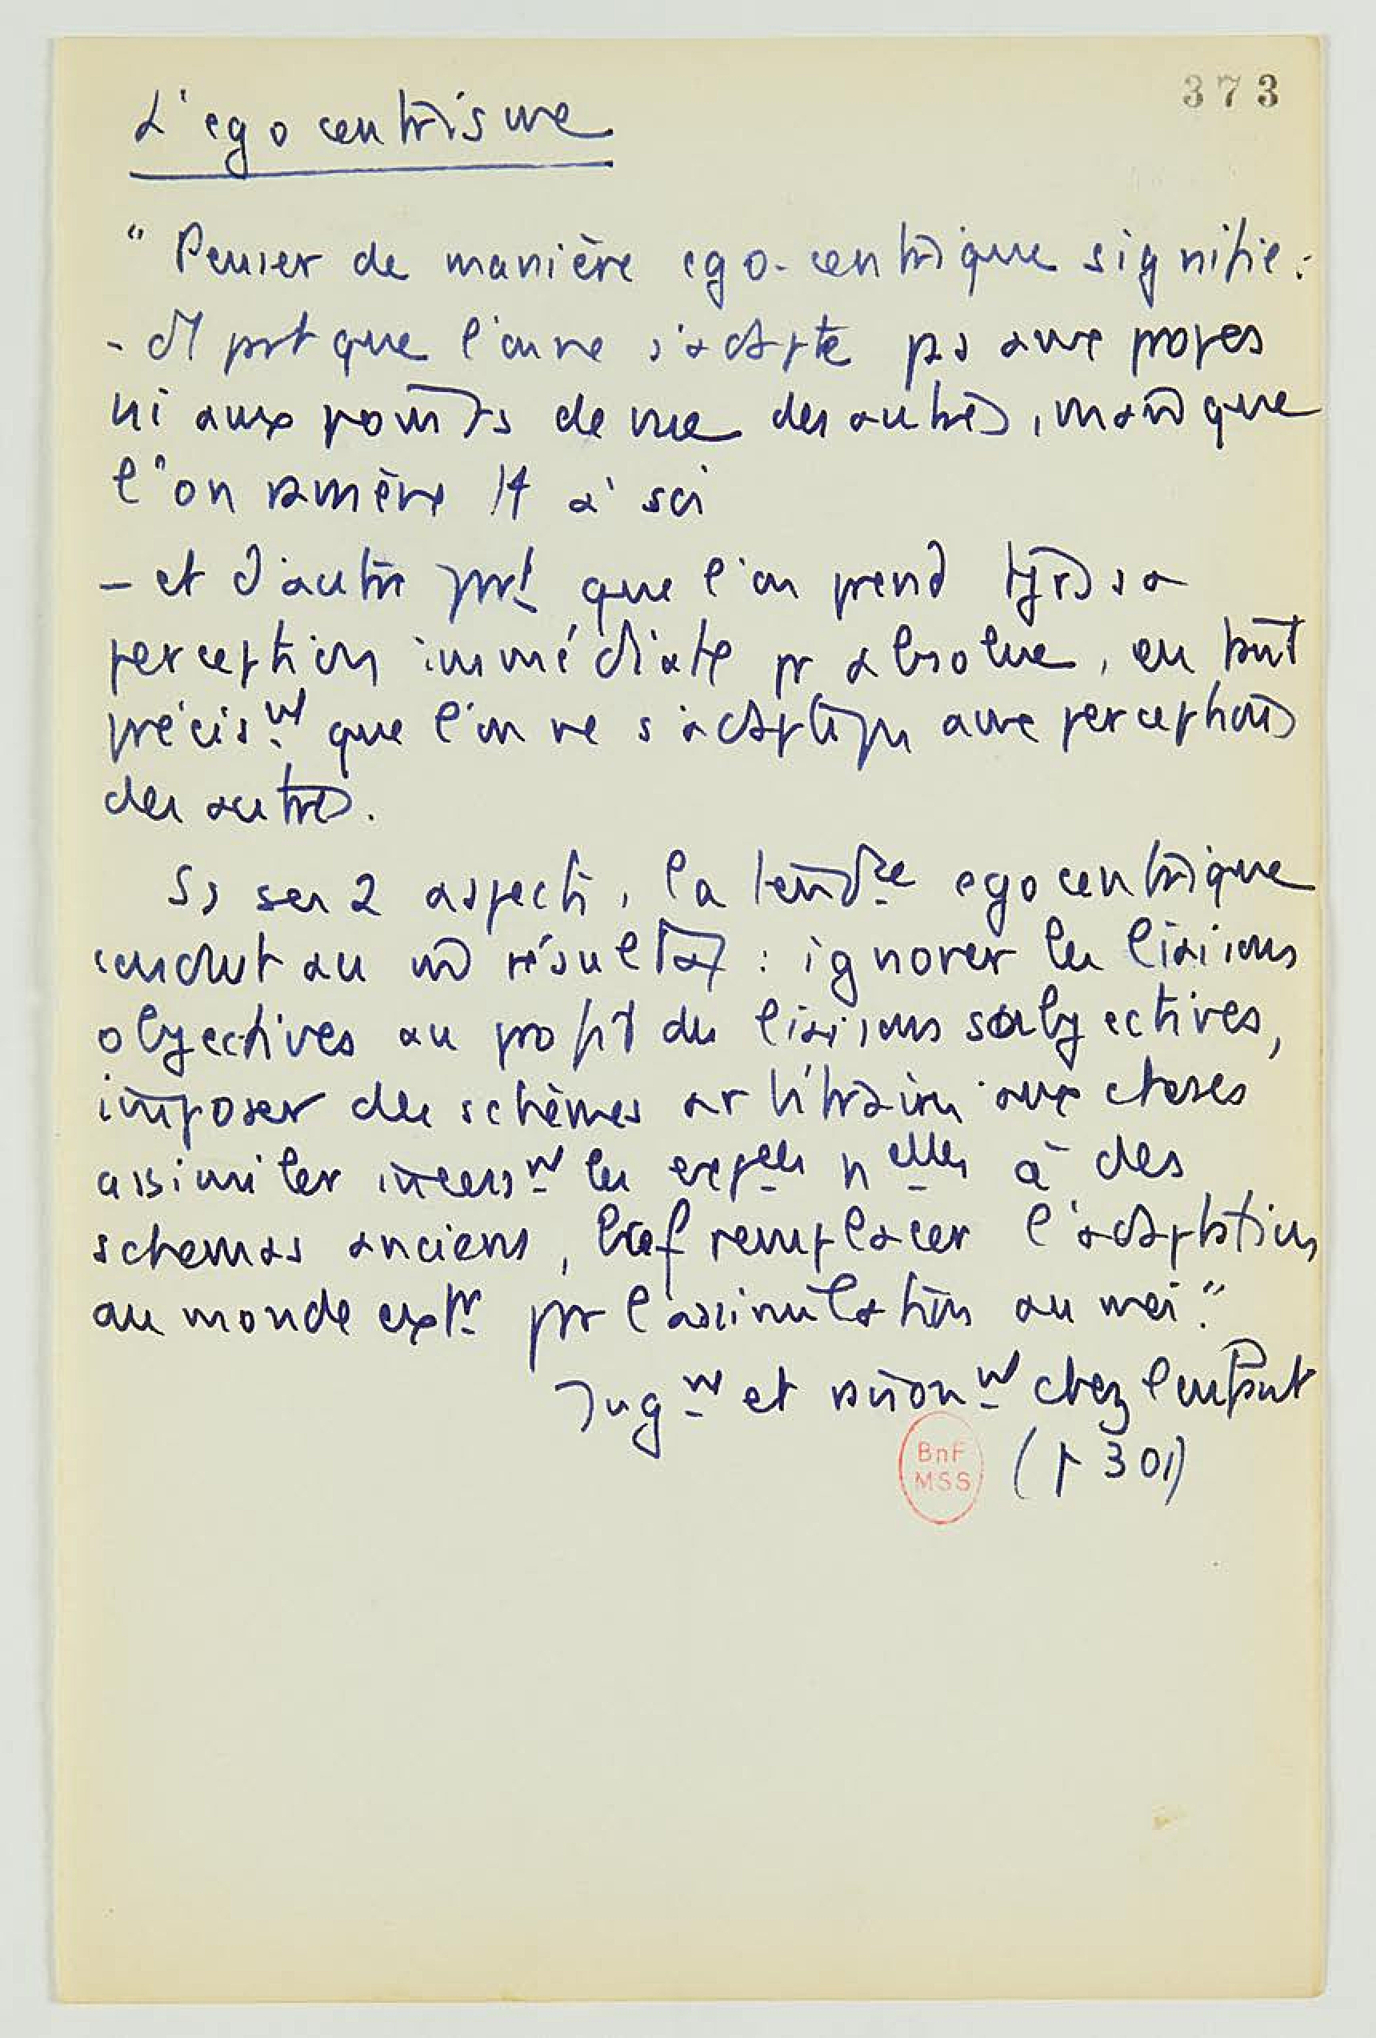 373
L'egocentrisme
" Penser de manière ego-centrique signifie :
- d1 part que l'on ne s'adapte ps aux propos
ni aux points de vue des autres, mais que
l'on ramène tt à soi
- et d'autre part que l'on prend tjrs sa
perception immédiate pr absolue, en tant
précis.nt que l'on ne s'adapte ps aux perceptions
des autres.
Ss ses 2 aspects, la tendce egocentrique
conduit au m résultat : ignorer les liaisons
objectives au profit des liaisons subjectives,
imposer des schèmes arbitraires aux choses
assimiler incess.nt les expces nelles à des
schemas anciens, bref remplacer l'adaptation
au monde extr par l'assimilation au moi."
Jug.nt et raison.nt chez l'enfant
(p 301)
BnF
MSS